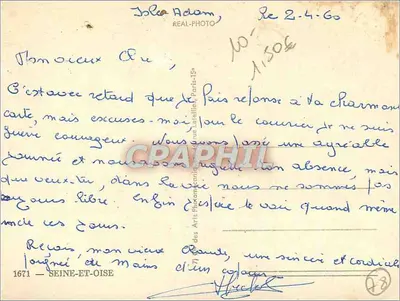 Isle Adam, le 2-4-60
REAL-PHOTO
10-
1,50€
Mon vieux
C'est avec retard que je fais réponse à ta charmante
carte, mais excuses-moi, pour le courrier je ne suis
guère courageux. Nous avons passé une agréable
journée et nous avons ton absence, mais
que veux-tu, dans la vie nous ne sommes pas
toujours libre. Enfin j'espère te voir quand même
un de ces jours.
Reçois, mon vieux une sincère et cordiale
poignée de mains d'un copain
CPAPHIL
1671 — SEINE-ET-OISE
78